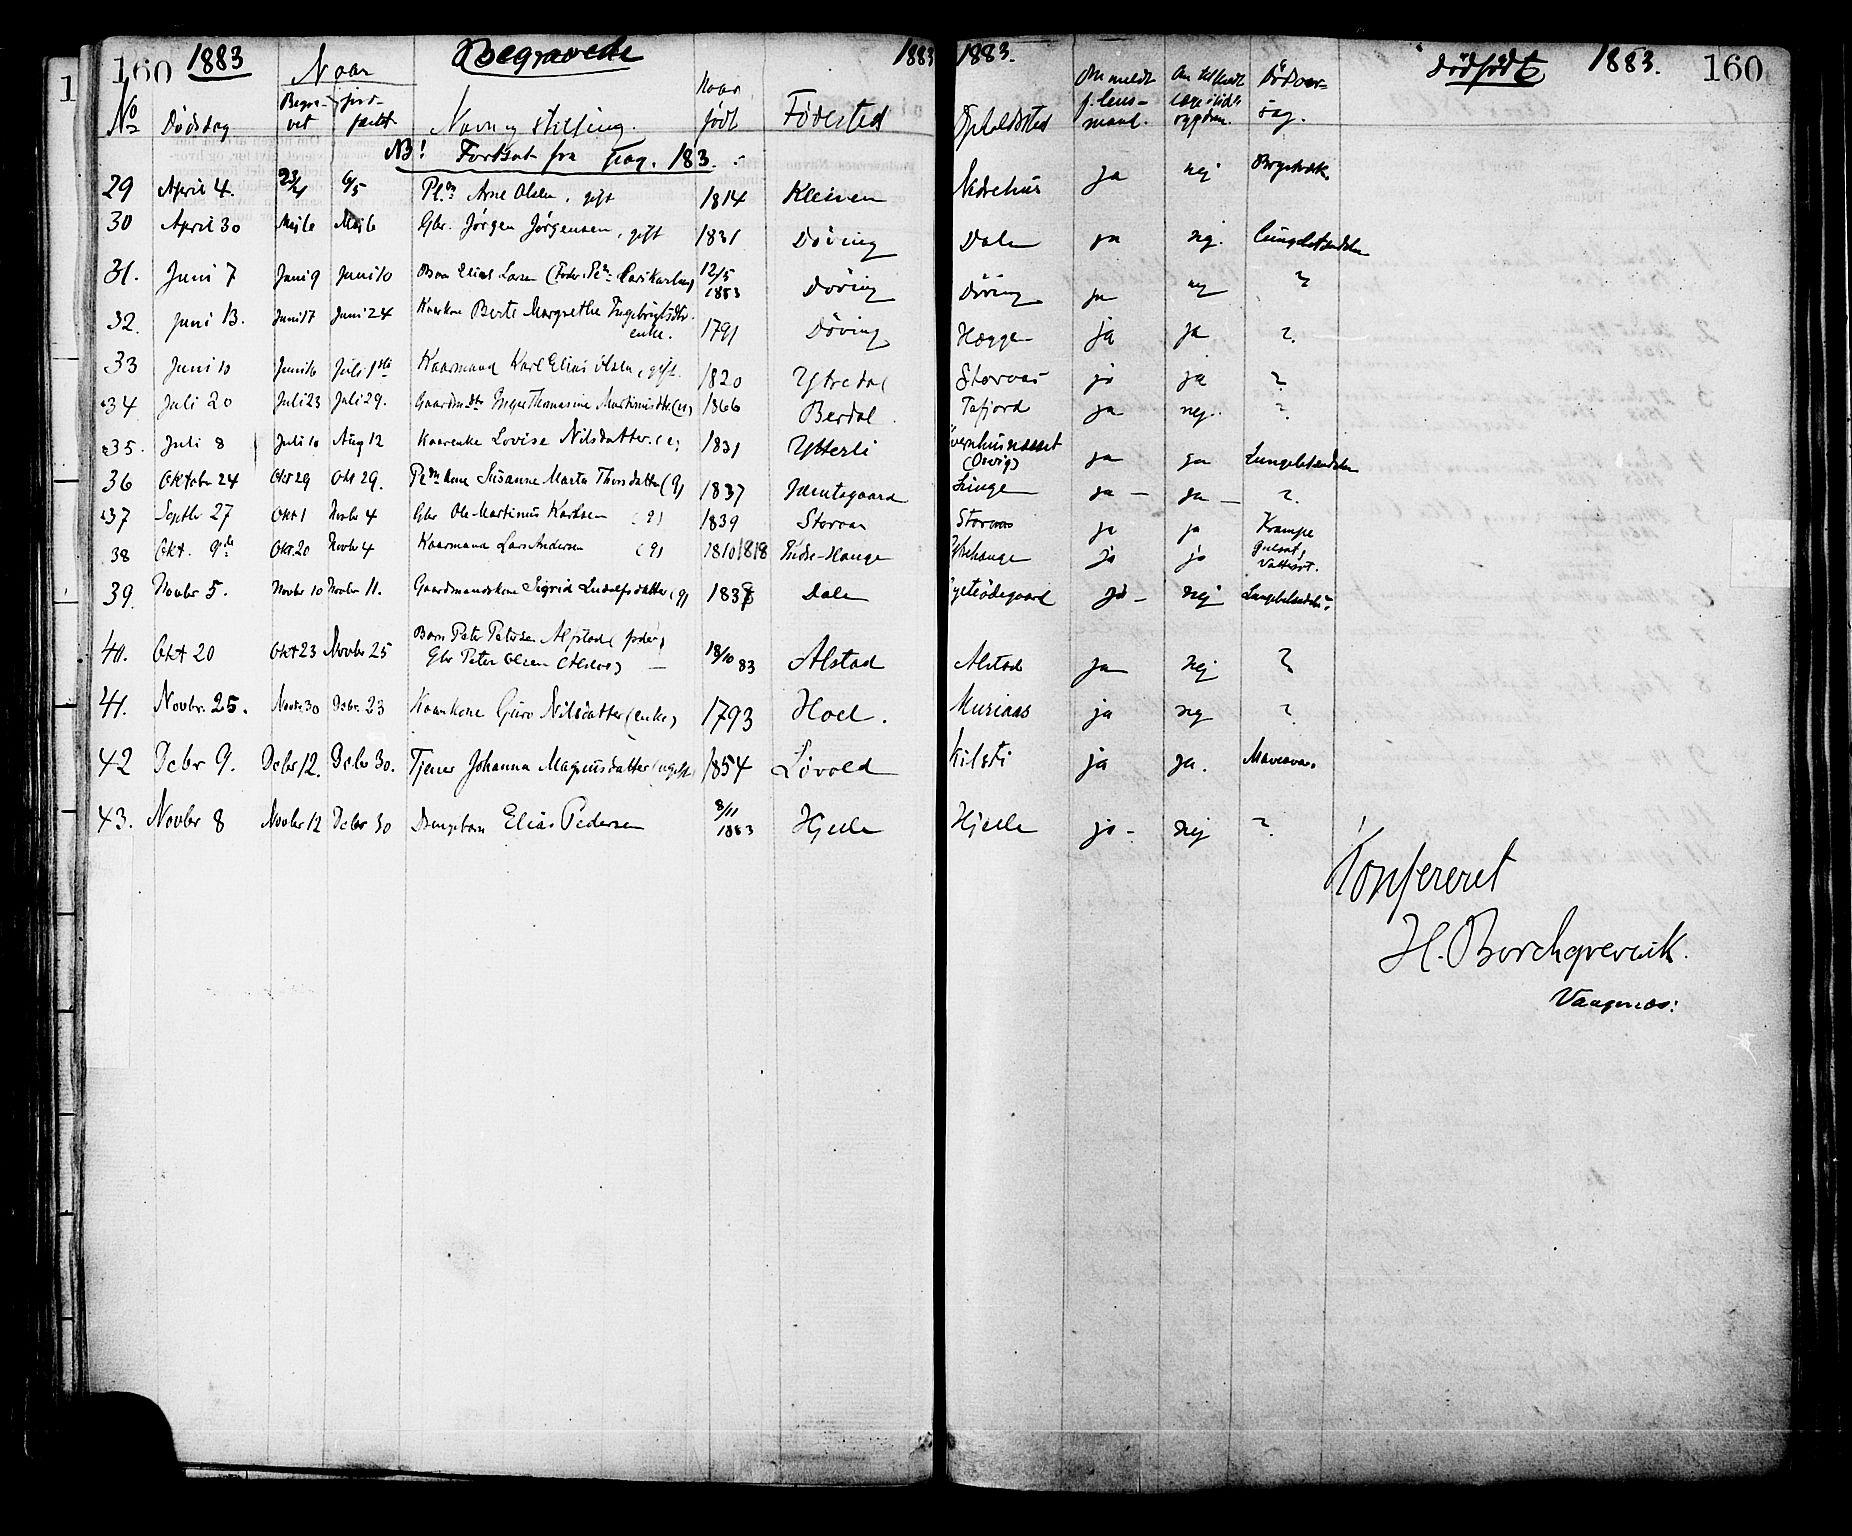 160 1883 Naar Begravede 1883 1883. Dødfødte 1883. 160
No Dødsdag Begravet jordfæstet Navn og stilling. Naar født Fødested Opholdssted Anmeldt f. lensmand. Dødsårsag.
NB! Fortsat fra Pag. 183.
29 April 4. 23/4 6/5 Arne Olsen, gift 1814 Kleiven Nedrehus ja nej Brystsvk.
30 April 30 Mai 6 Mai 6 Gbr. Jørgen Jørgensen, gift 1831 Døving Dalen ja nej.
31. Juni 7 Juni 9 Juni 10 Barn Elias Larsen 12/5 1883 Døving Døving ja nej ?
32. Juni 13. Juni 17 Juni 24 Kaarkone Berte Margrethe Ingebrigtsdtr. enke. 1791 Døving Hægge ja ja ?
33 Juni 10 Juni 16 Juli 1ste Kaarmand Karl Elias Olsen, gift. 1820 Ytredal Storaas ja ja ?
34 Juli 20 Juli 23 Juli 29. Gaardm.dtr Inger Thomasine Martinusdtr. (u) 1866 Berdal. Tafjord ja nej. ?
35. Juli 8 Juli 10 Aug 12 Kaarenke Lovise Nilsdatter. (e) 1831 Ytterli (Overig) ja ja
36 Oktober 24 Okt 29 Okt 29. Susanne Marta Thorsdatter (g) 1837 Jæmtegaard Linge ja – ja – ?
37 Septbr 27 Okt 1 Novbr 4 Gbr Ole Martinus Karlsen (g) 1839 Storaas Storaas ja ja Krampe
38 Okt. 9de Okt. 20 Novbr 4 Kaarmand Lars Andersen (g) 1810 1818 Indre-Hauge Ytrehauge ja ja Gulsot, Vattersot.
39. Novbr 5. Novbr 10 Novbr 11. Gaardmandskone Sigrid Ludolfsdatter (g) 1838 Dalen ja – nej
40. Okt 20 Okt 23 Novbr 25 Barn Peter Petersen Alstad (fader,
Gbr Peter Olsen Alstad) – 18/10 83 Alstad Alstad ja nej ?
41. Novbr. 25. Novbr 30 Debr. 23 Kaarkone Guro Nilsdatter (enke) 1793 Hoel. Muriaas ja nej ?
42 Debr 9. Debr 12. Debr 30. Tjener Johanna Magnusdatter (ugift) 1854 Løvold Kilsti ja ja.
43. Novbr 8 Novbr 12 Debr 30 Drengebarn Elias Pedersen 8/11 1883 Hjelle Hjelle ja – nej ?
Konfereret
H. Borchgrevink.
Vaagenæs: